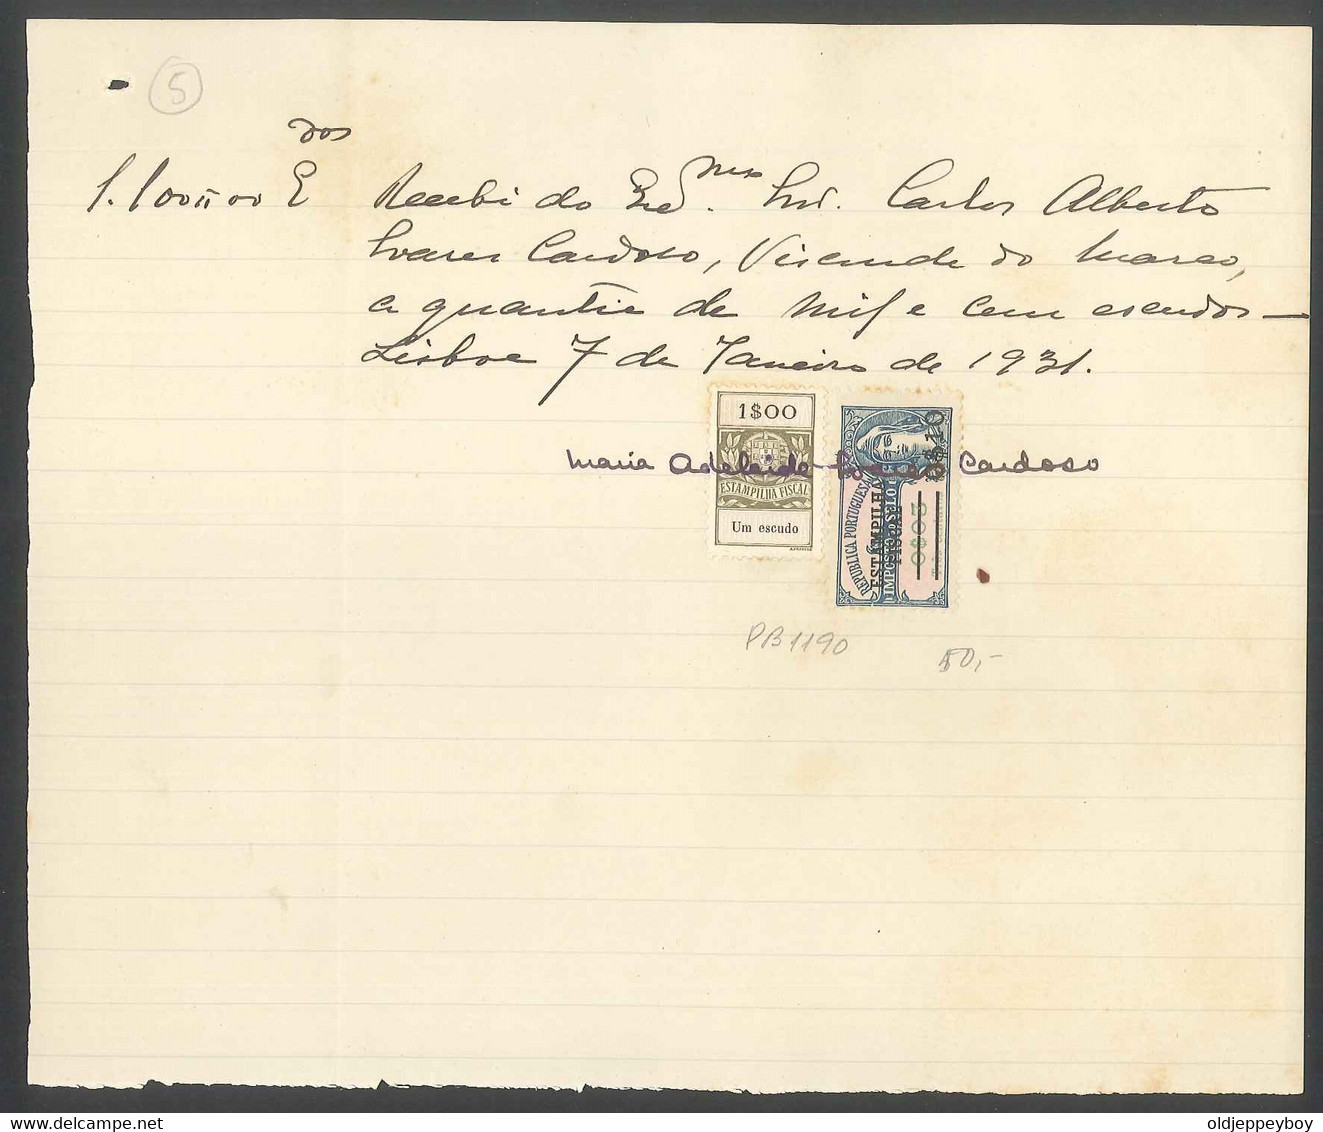 5
1.100$00 E dos
Recebi do Exmo. Snr. Carlos Alberto
Soares Cardoso, Visconde do Marco,
a quantia de mil e cem escudos —
Lisboa 7 de Janeiro de 1931.
1$00
ESTAMPILHA FISCAL
Um escudo
REPUBLICA PORTUGUESA
IMPOSTO DO SELO
ESTAMPILHA
FISCAL
0$05
0$10
Maria Adelaide Soares Cardoso
PB1190
50,-
www.delcampe.net
oldjeppeyboy